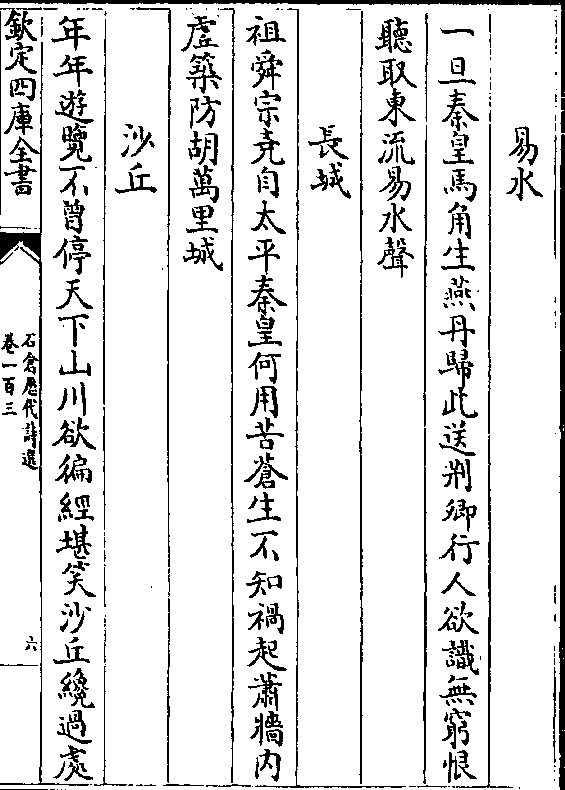 易水
一旦秦皇馬角生燕丹歸此送荆卿行人欲識無窮恨
聽取東流易水聲
長城
祖舜宗堯自太平秦皇何用苦蒼生不知禍起蕭牆内
虛築防胡萬里城
沙丘
年年遊覽不曽停天下山川欲徧經堪笑沙丘纔過處
欽定四庫全書
石倉歷代詩選
卷一百三
六